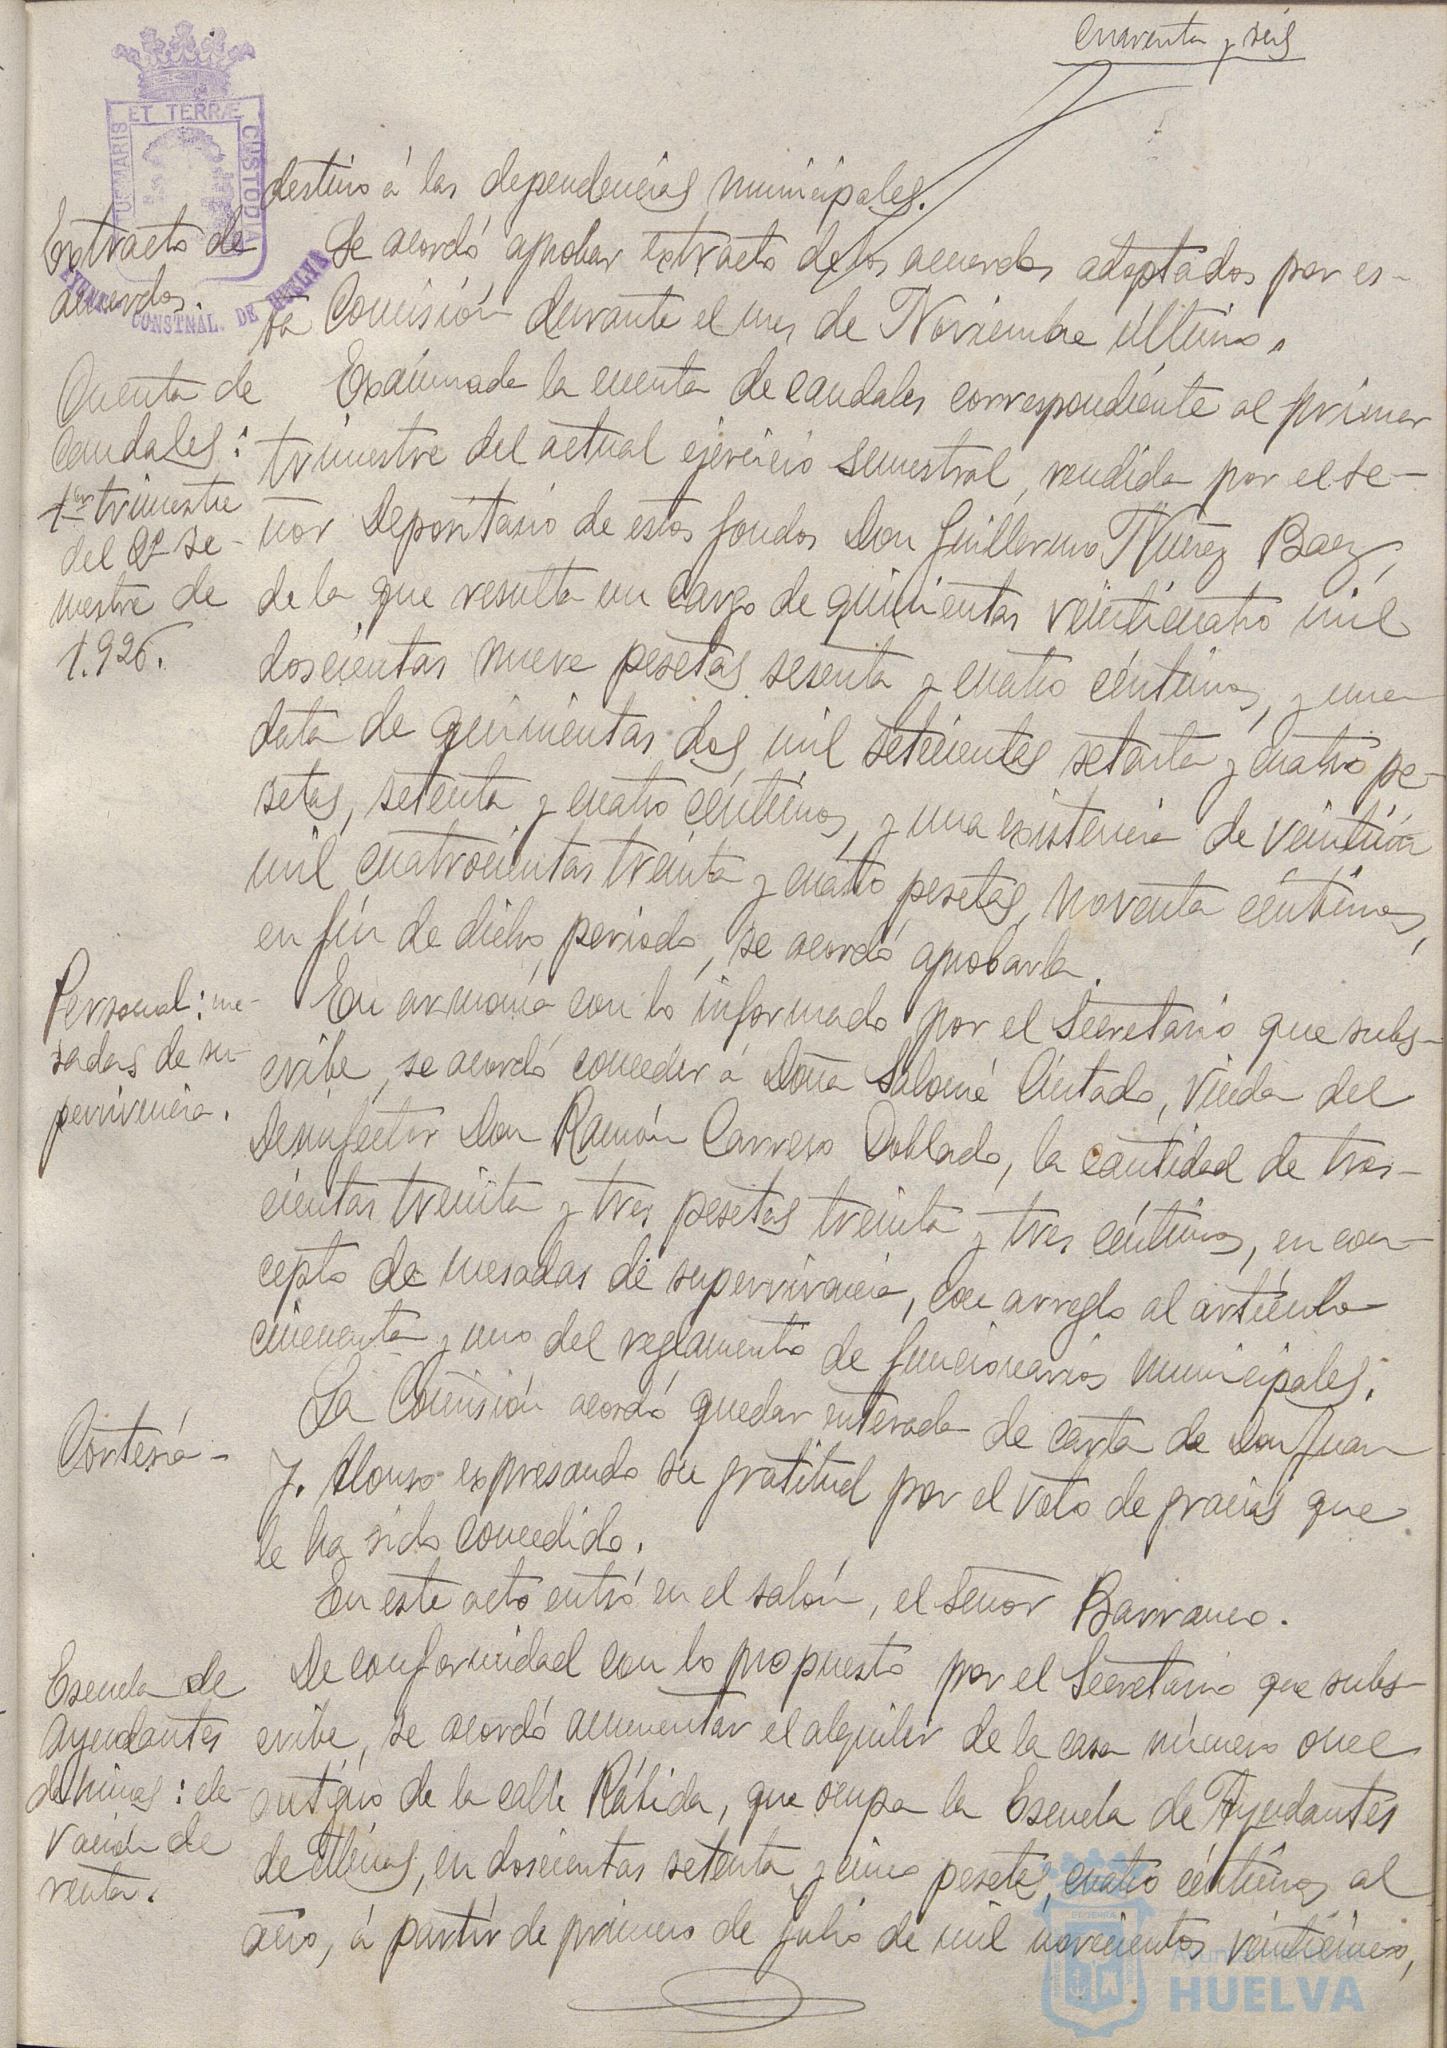 cuarenta y seis
PORTUS MARIS ET TERRÆ CUSTODIA
AYUNTO CONSTNAL. DE HUELVA
destino á las dependencias municipales.
Extracto de
acuerdos.
Se acordó aprobar extracto de los acuerdos adoptados por es-
ta Comisión durante el mes de Noviembre último.
Cuenta de
Caudales:
1er trimestre
del 2º Se-
mestre de
1.926.
Examinada la cuenta de caudales correspondiente al primer
trimestre del actual ejercicio semestral, rendida por el se-
ñor Depositario de estos fondos Don Guillermo Nuñez Baez,
de la que resulta un cargo de quinientas veinticuatro mil
doscientas nueve pesetas sesenta y cuatro céntimos, y una
data de quinientas dos mil setecientas setenta y cuatro pe-
setas, setenta y cuatro céntimos, y una existencia de veintiún
mil cuatrocientas treinta y cuatro pesetas, noventa céntimos,
en fin de dicho periodo, se acordó aprobarla.
Personal: me-
sadas de su-
pervivencia.
En armonía con lo informado por el Secretario que subs-
cribe, se acordó conceder á Doña Salomé Cintado, viuda del
Desinfector Don Ramón Carrero Doblado, la cantidad de tres-
cientas treinta y tres pesetas treinta y tres céntimos, en con-
cepto de mesadas de supervivencia, con arreglo al artículo
cincuenta y uno del reglamento de funcionarios municipales.
Cortesía-
La Comisión acordó quedar enterada de carta de Don Juan
J. Alonso expresando su gratitud por el voto de gracias que
le ha sido concedido.
En este acto entró en el salón, el Señor Barranco.
Escuela de
Ayudantes
de Minas: ele-
vación de
renta.
De conformidad con lo propuesto por el Secretario que subs-
cribe, se acordó aumentar el alquiler de la casa número once
antiguo de la calle Rábida, que ocupa la Escuela de Ayudantes
de Minas, en doscientas setenta y cinco pesetas, cuatro céntimos al
año, á partir de primero de Julio de mil novecientos veinticinco,
Ayuntamiento de
HUELVA